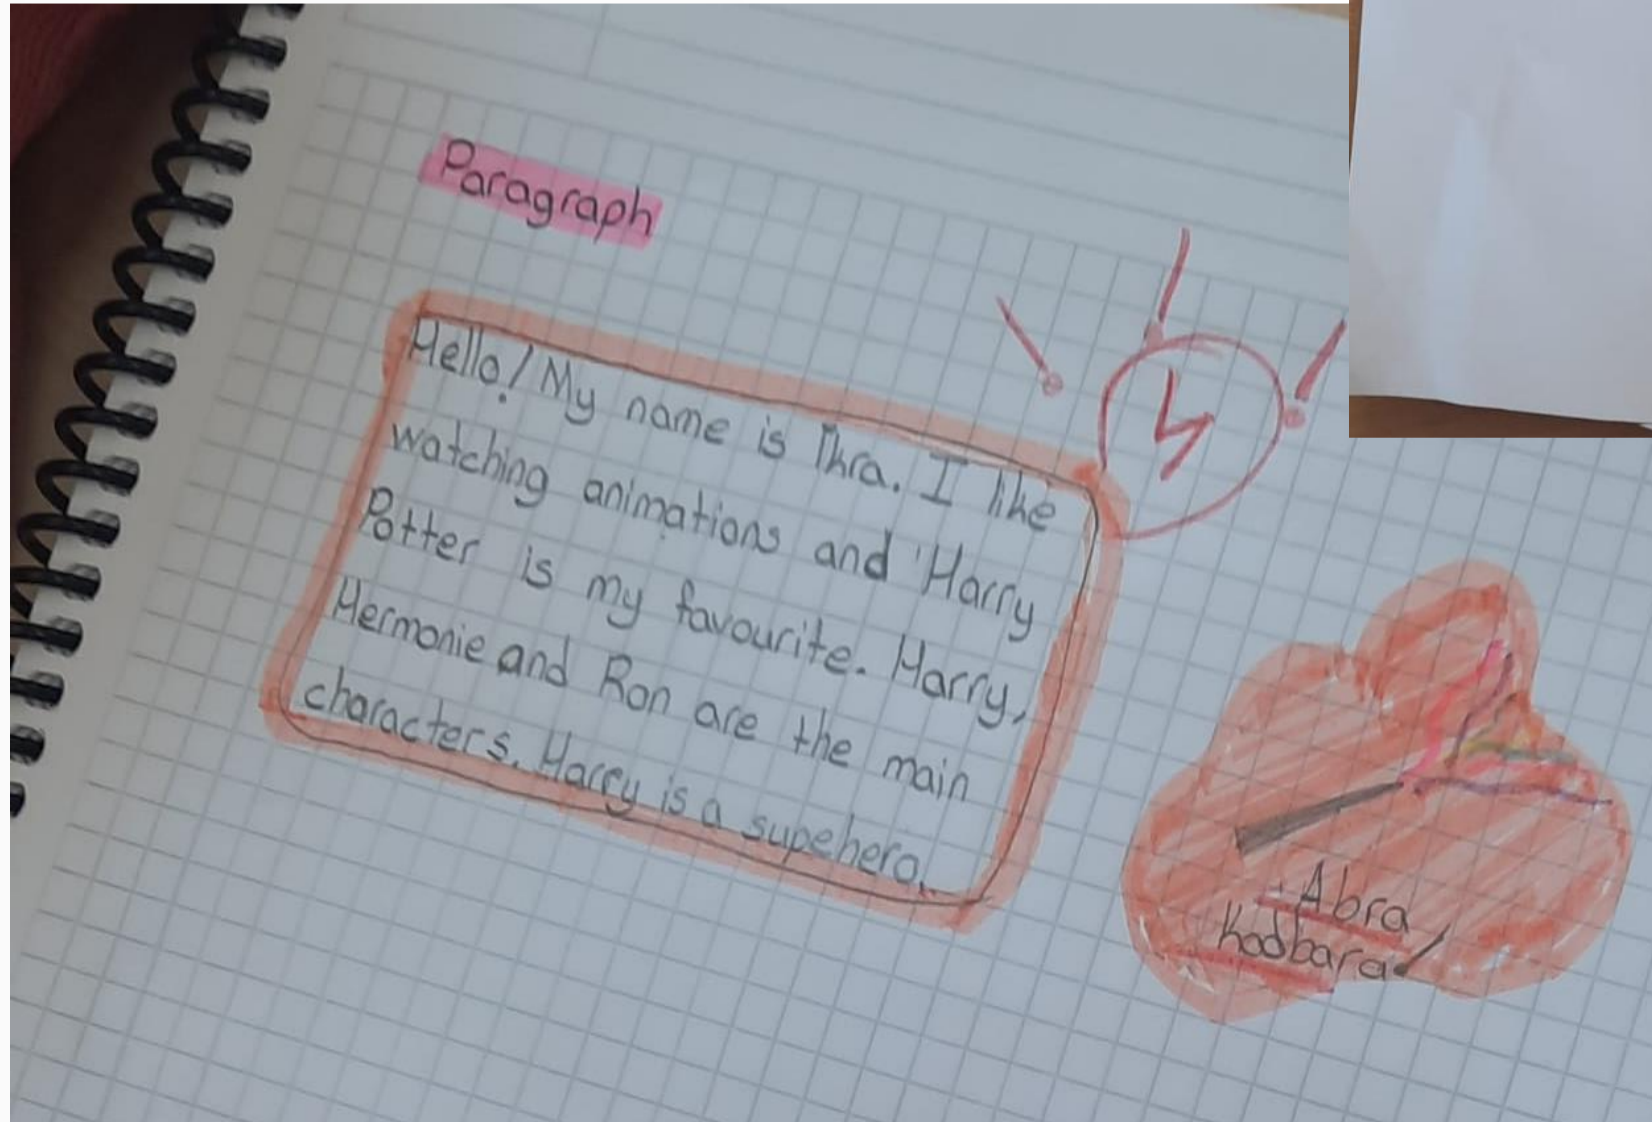 Paragraph
Hello! My name is İkra. I like
watching animations and Harry
Potter is my favourite. Harry,
Hermonie and Ron are the main
characters. Harry is a supehero.
Abra
Kadbara!